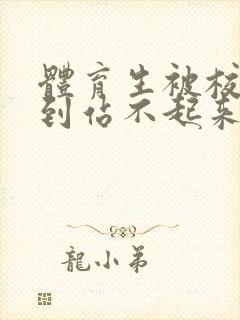 體育生被校
到佔不起來
龍小弟